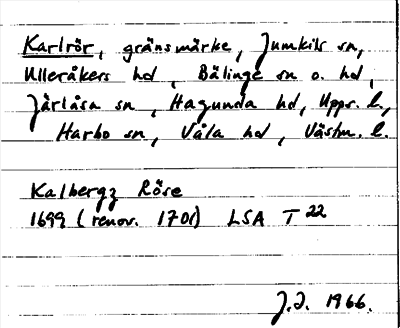 Karlrör, gränsmärke, Jumkils sn,
Ulleråkers hd, Bälinge sn o. hd,
Järlåsa sn, Hagunda hd, Upps. l.,
Harbo sn, Våla hd, Västm. l.
Kalbergz Röse
1699 (renov. 1701) LSA T 22
J.J. 1966.